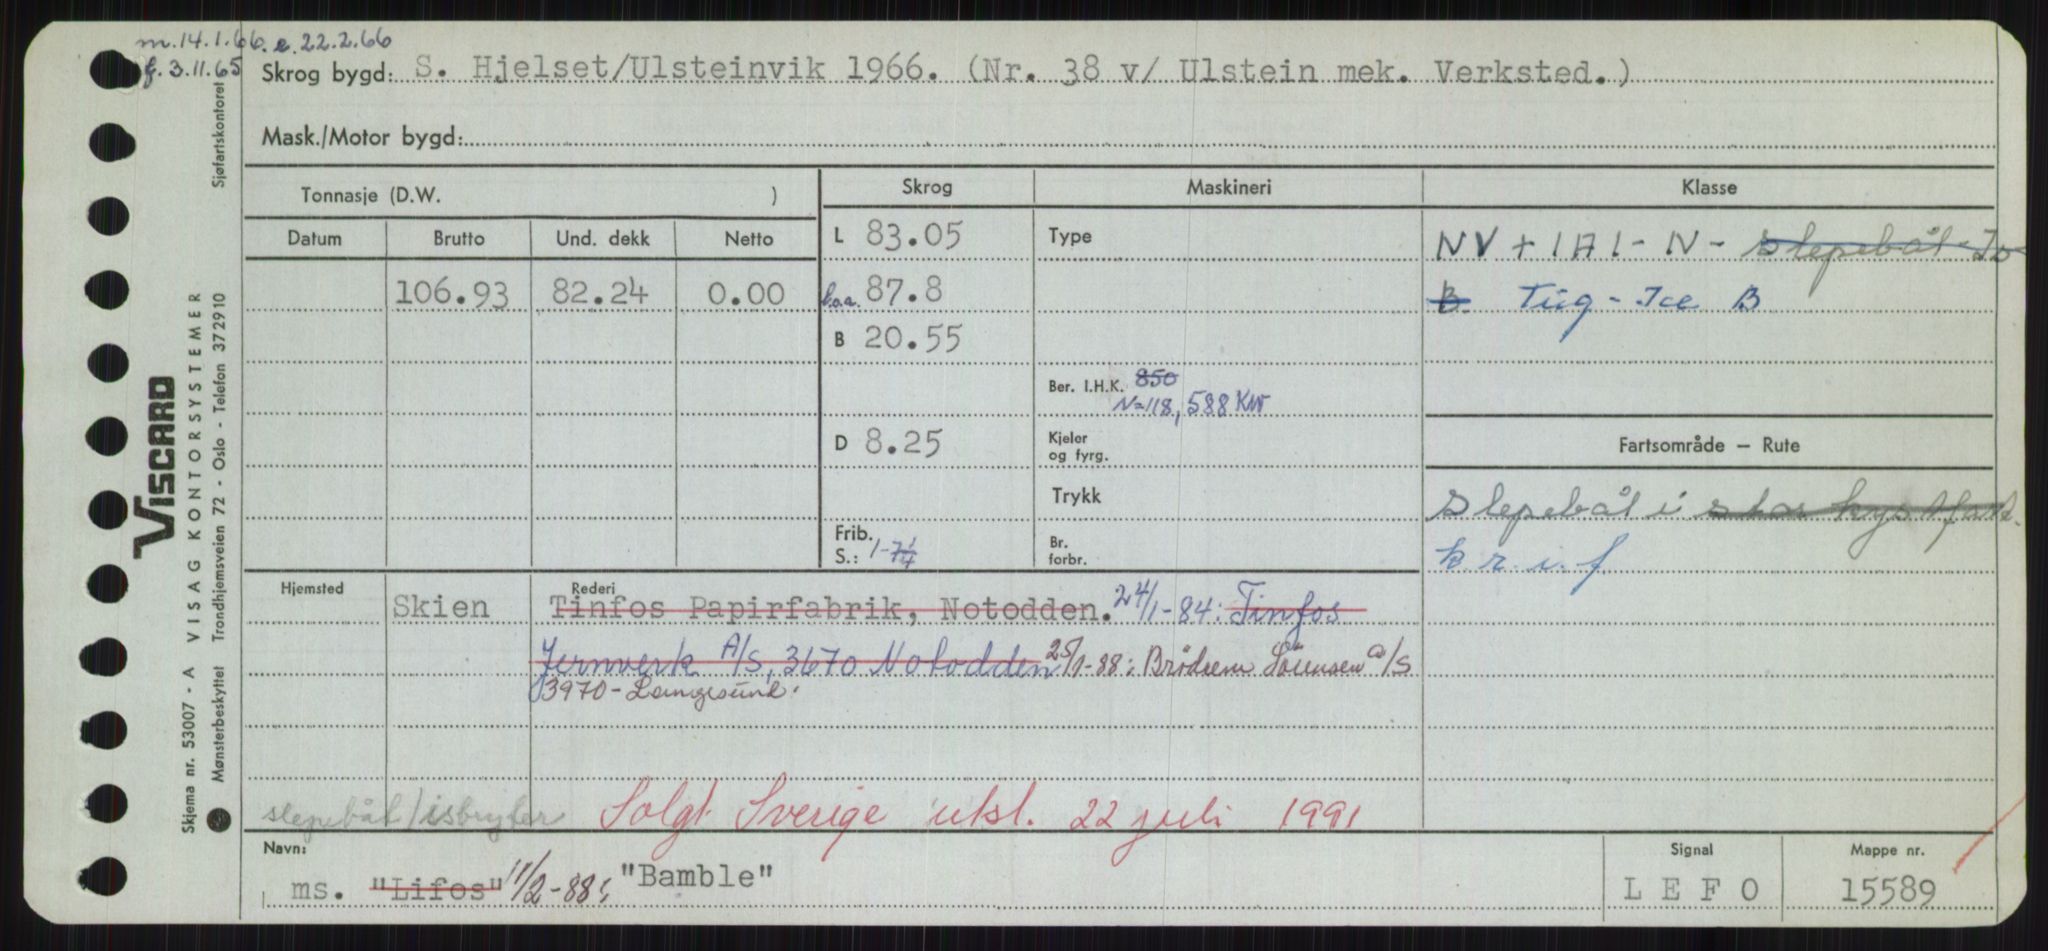 m. 14.1.66. e. 22.2.66
f. 3.11.65 Skrog bygd: S. Hjelset/Ulsteinvik 1966. (Nr. 38 v/ Ulstein mek. Verksted.)
Mask./Motor bygd:
Tonnasje (D.W. )
Skrog Maskineri Klasse
Datum Brutto Und. dekk Netto
L 83.05 Type NV + 1A1 - N - slepebåt - Is
106.93 82.24 0.00 l.o.a. 87.8 B. Tug - Ice B
B 20.55
Ber. I.H.K. 850
N=118, 588 KW
D 8.25 Kjeler og fyrg. Fartsområde — Rute
Trykk slepebåt i stor kystfart.
Frib. S.: 1-7¼ Br. forbr. k r. i. f
Hjemsted Rederi
Skien Tinfos Papirfabrik, Notodden. 24/1-84: Tinfos
Jernverk A/S, 3670 Notodden 25/1-88: Brödrene Sörensen a/s
3970 - Langesund.
slepebåt/isbryter Solgt Sverige utsl. 22 juli 1991
Navn: Signal Mappe nr.
ms. "Lifos" 11/2-88: "Bamble" LEFO 15589
VISCARD
VISAG KONTORSYSTEMER
Skjema nr. 53007 - A
Mønsterbeskyttet Trondhjemsveien 72 - Oslo - Telefon 372910 Sjøfartskontoret